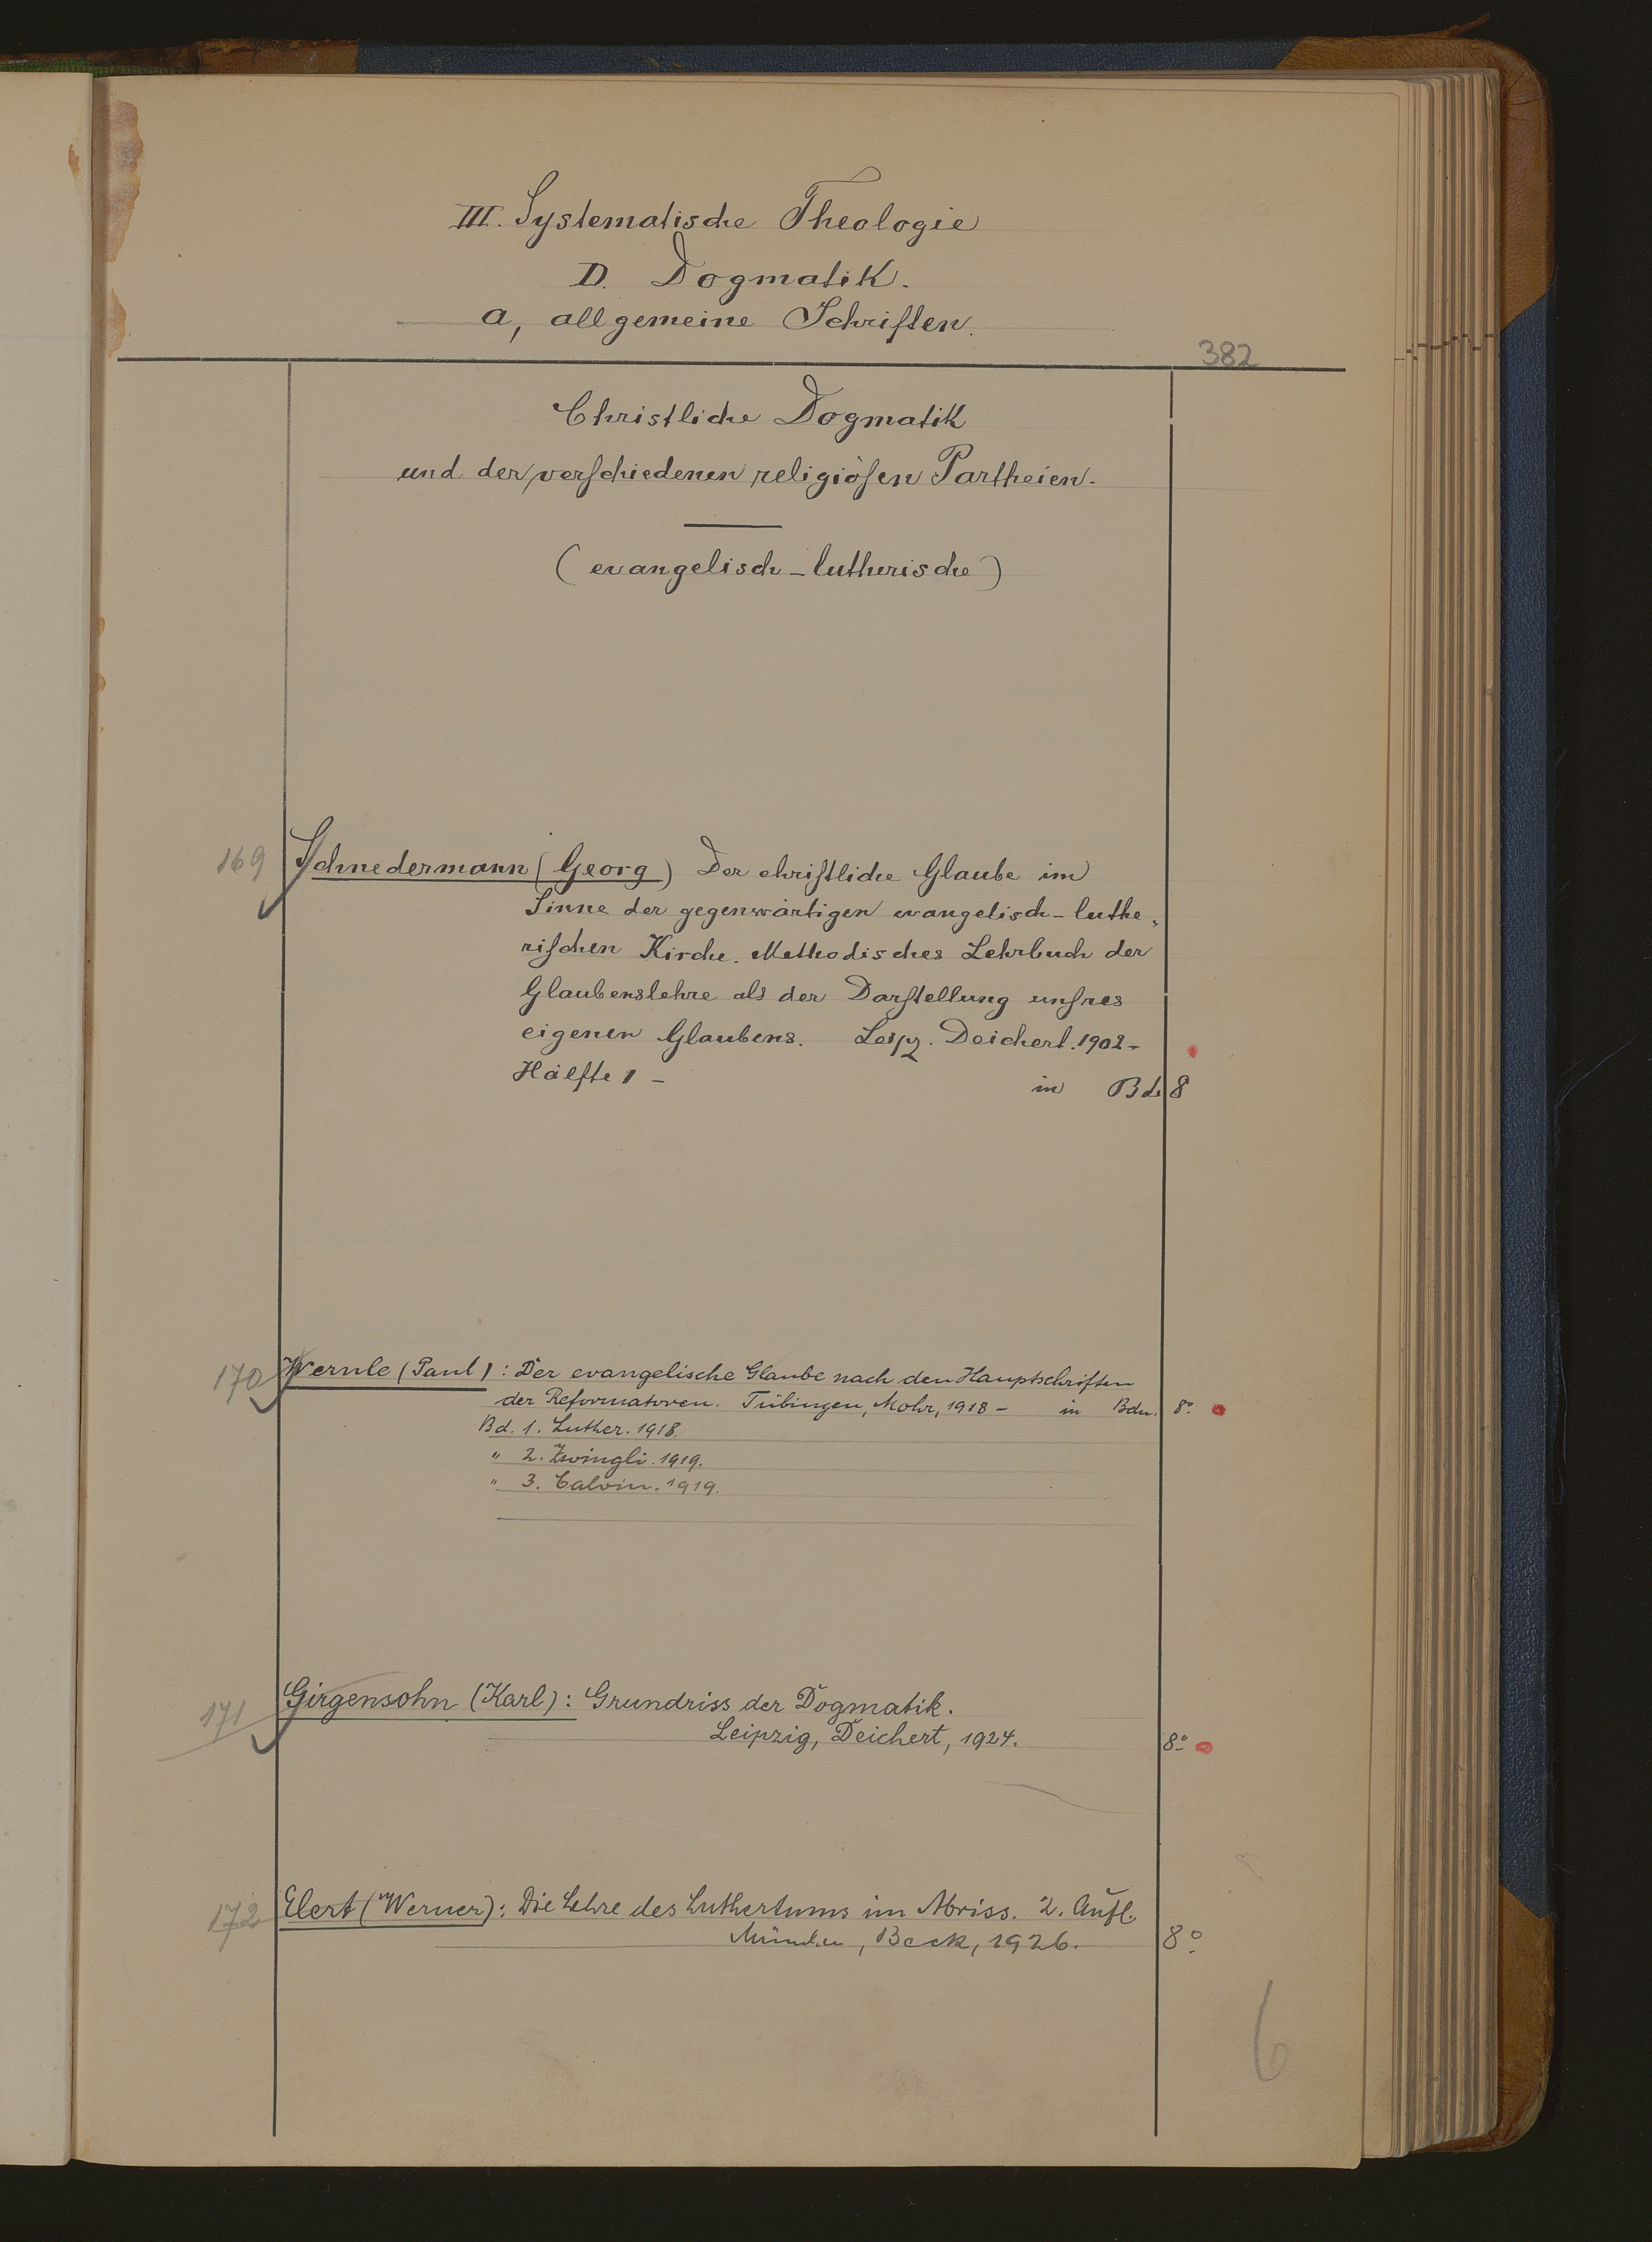 III. Systematische Theologie
D. Dogmatik.
a, allgemeine Schriften.
382
Christliche Dogmatik
und der verschiedenen religiösen Partheien.
(evangelisch-lutherische)
169 Schnedermann (Georg) Der christliche Glaube im
Sinne der gegenwärtigen evangelisch-luthe-
rischen Kirche. Methodisches Lehrbuch der
Glaubenslehre als der Darstellung unsres
eigenen Glaubens. Leipz. Deichert. 1902-
Hälfte 1 - in Bd 8
170 Wernle (Paul): Der evangelische Glaube nach den Hauptschriften
der Reformatoren. Tübingen, Mohr, 1918 - in Bdn. 8°
Bd. 1. Luther. 1918.
" 2. Zwingli. 1919.
" 3. Calvin. 1919.
171 Girgensohn (Karl): Grundriss der Dogmatik.
Leipzig, Deichert, 1924. 8°
172 Elert (Werner): Die Lehre des Luthertums im Abriss. 2. Aufl.
München, Beck, 1926. 8°
6